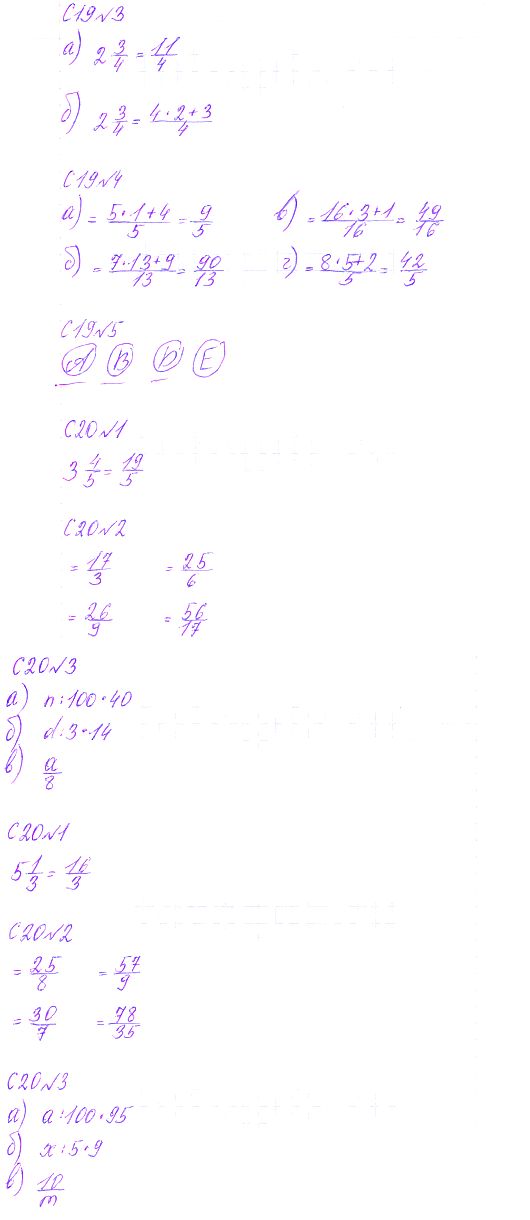 С19№3
а) 2 3/4 = 11/4
б) 2 3/4 = 4·2+3/4
С19№4
а) = 5·1+4/5 = 9/5 в) = 16·3+1/16 = 49/16
б) = 7·13+9/13 = 90/13 г) = 8·5+2/5 = 42/5
С19№5
А В D Е
С20№1
3 4/5 = 19/5
С20№2
= 17/3 = 25/6
= 26/9 = 56/17
С20№3
а) n:100·40
б) d:3·14
в) a/8
С20№1
5 1/3 = 16/3
С20№2
= 25/8 = 57/9
= 30/7 = 78/35
С20№3
а) a:100·95
б) x:5·9
в) 10/m